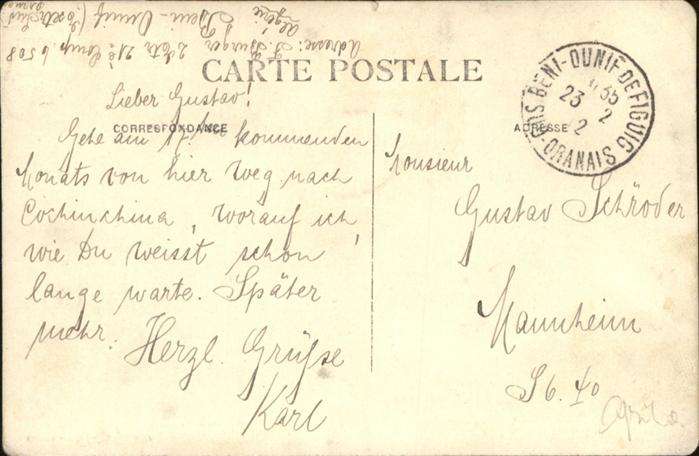 Adresse: J. Burger
2 Etr. 21è Comp. 6508
Beni-Ounif
Algérie
CARTE POSTALE
CORRESPONDANCE
ADRESSE
BENI-OUNIF DE FIGUIG
23
2
ORANAIS
Lieber Gustav!
Gehe am kommenden
Monats von hier weg nach
Cochinchina, worauf ich,
wie Du weisst schon
lange warte. Später
mehr. Herzl. Grüsse
Karl
Monsieur
Gustav Schröder
Mannheim
S6. 40